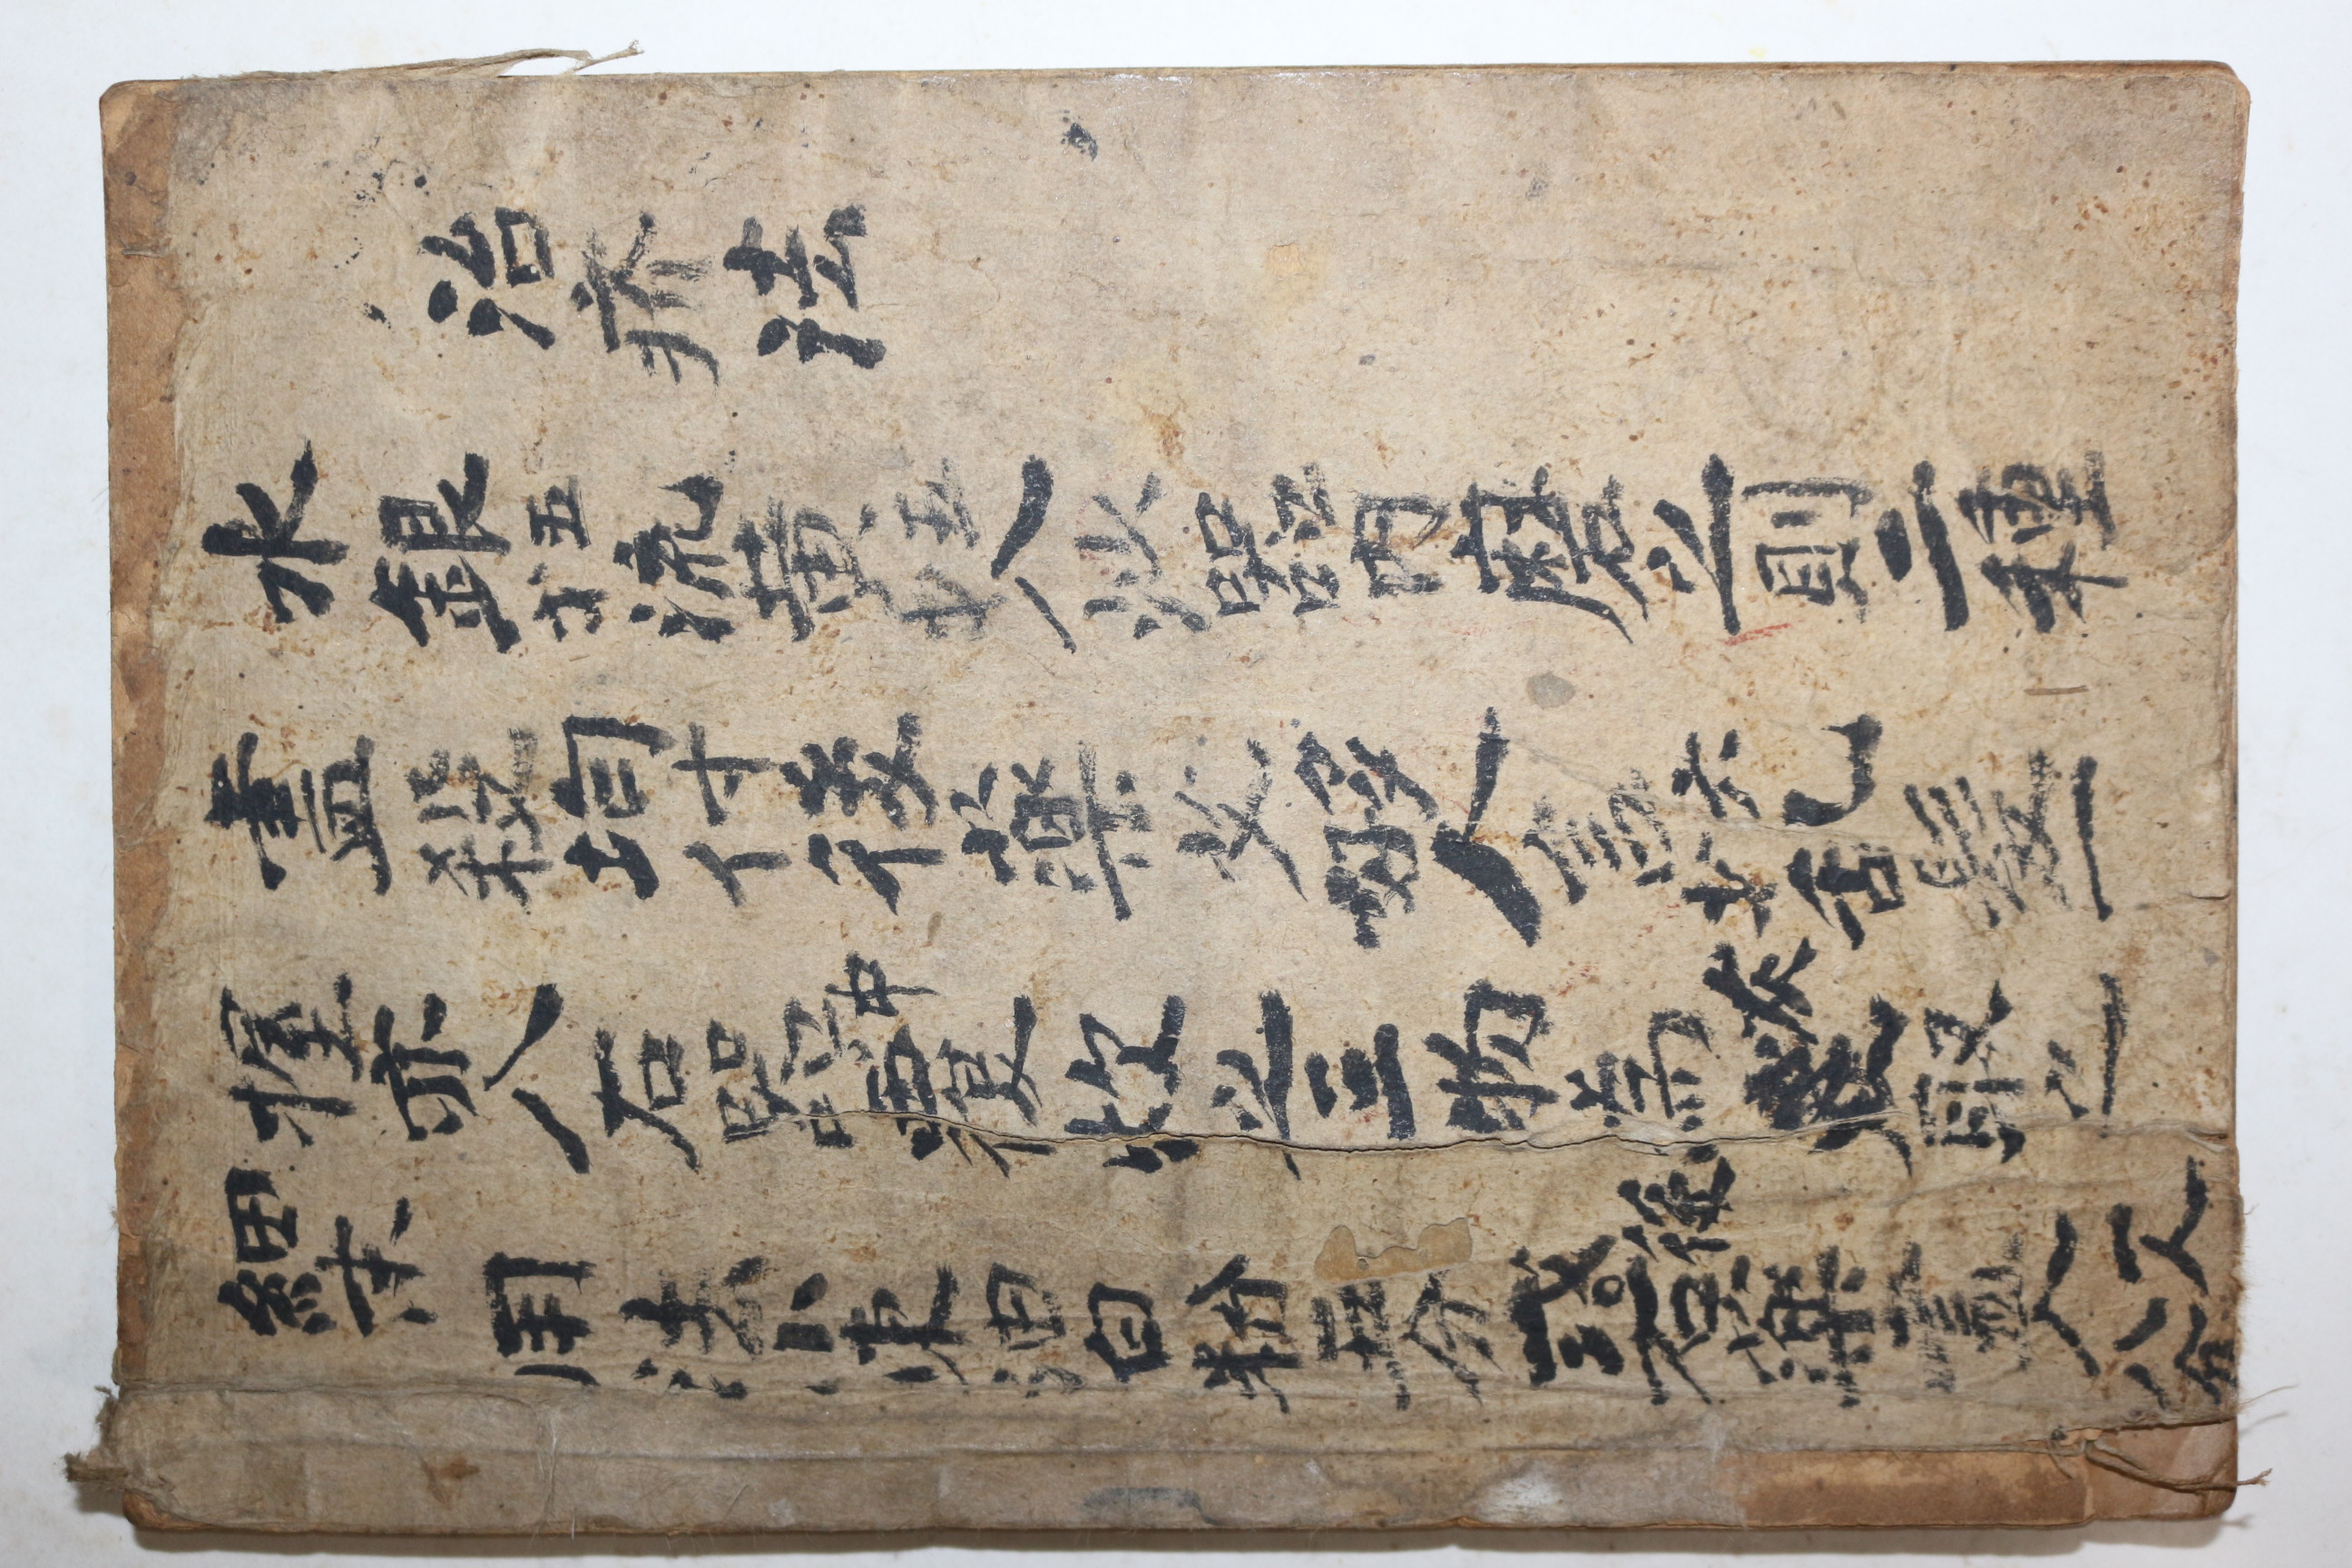 治疥法
水銀五戔流黄五戔入沙器內磨之則二種
盡殺均付後藥艾 人言六戔乱髮一
握亦入石器中覆炊之三物為灰 取之
細末 用法小東油白粉五分式後石藥盡入一人八分